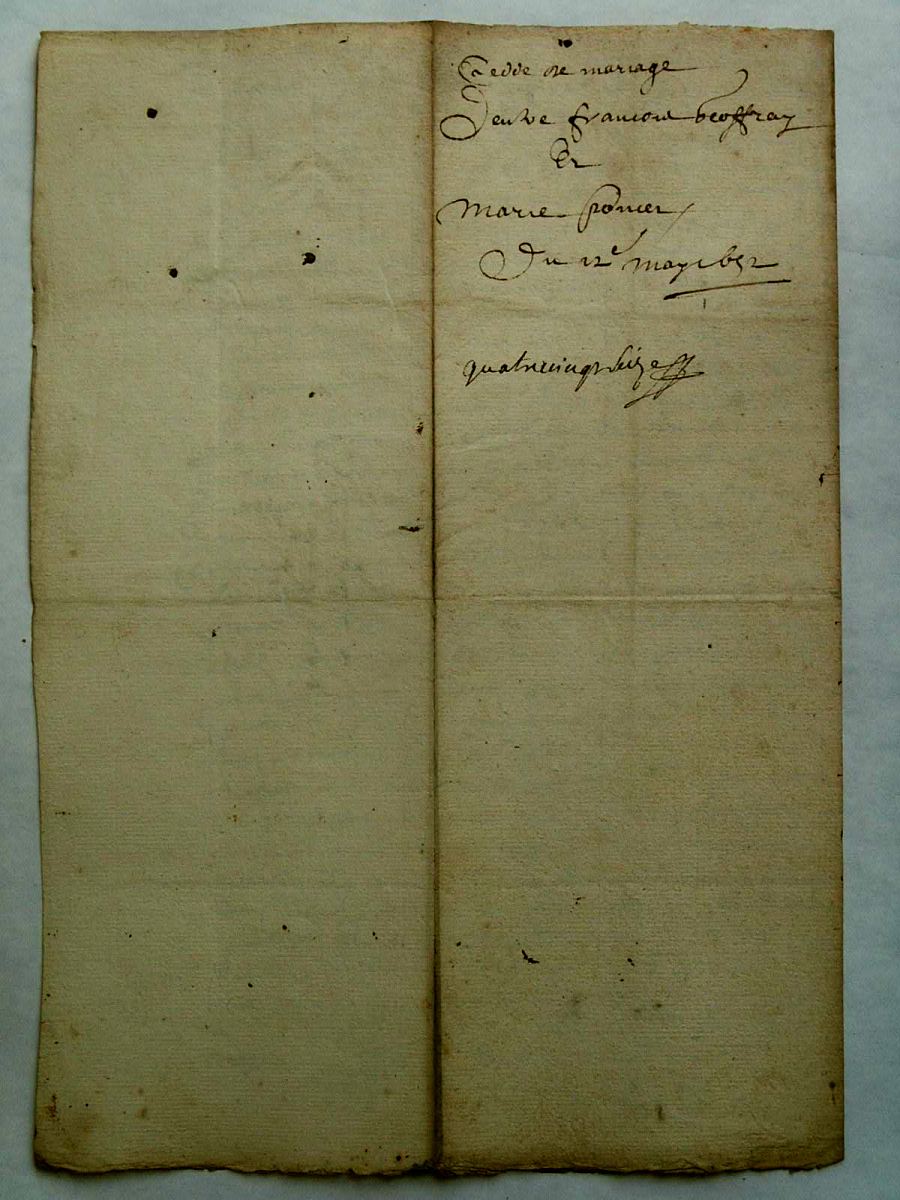 Cedde de mariage
Dentre francois Geoffray
Et
marie poncet
Du 12e may 1652
quatrevingt seize